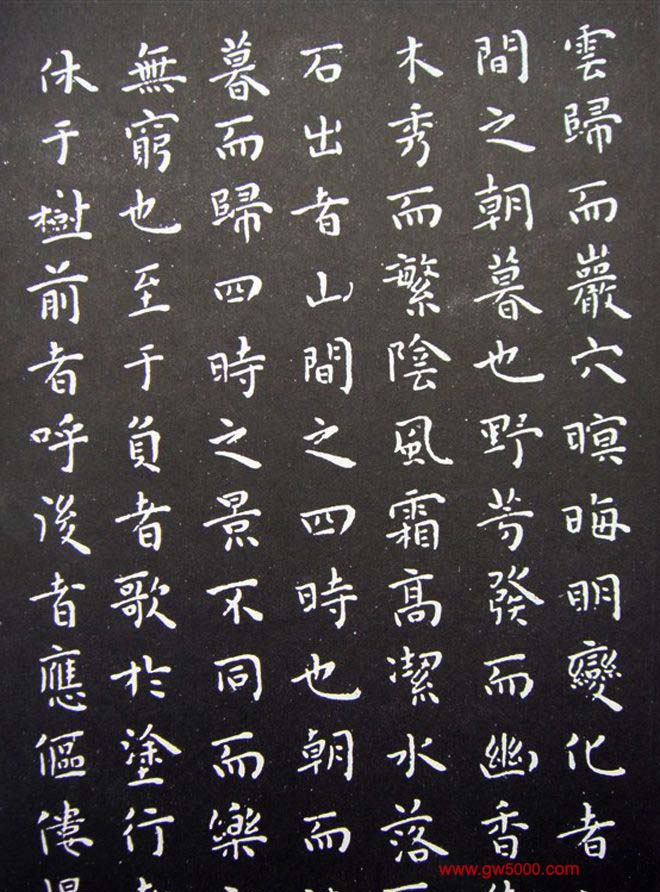 雲歸而巖穴暝晦明變化者
間之朝暮也野芳發而幽香
木秀而繁陰風霜高潔水落
石出者山間之四時也朝而
暮而歸四時之景不同而樂
無窮也至于負者歌於塗行
休于樹前者呼後者應傴僂
www.gw5000.com